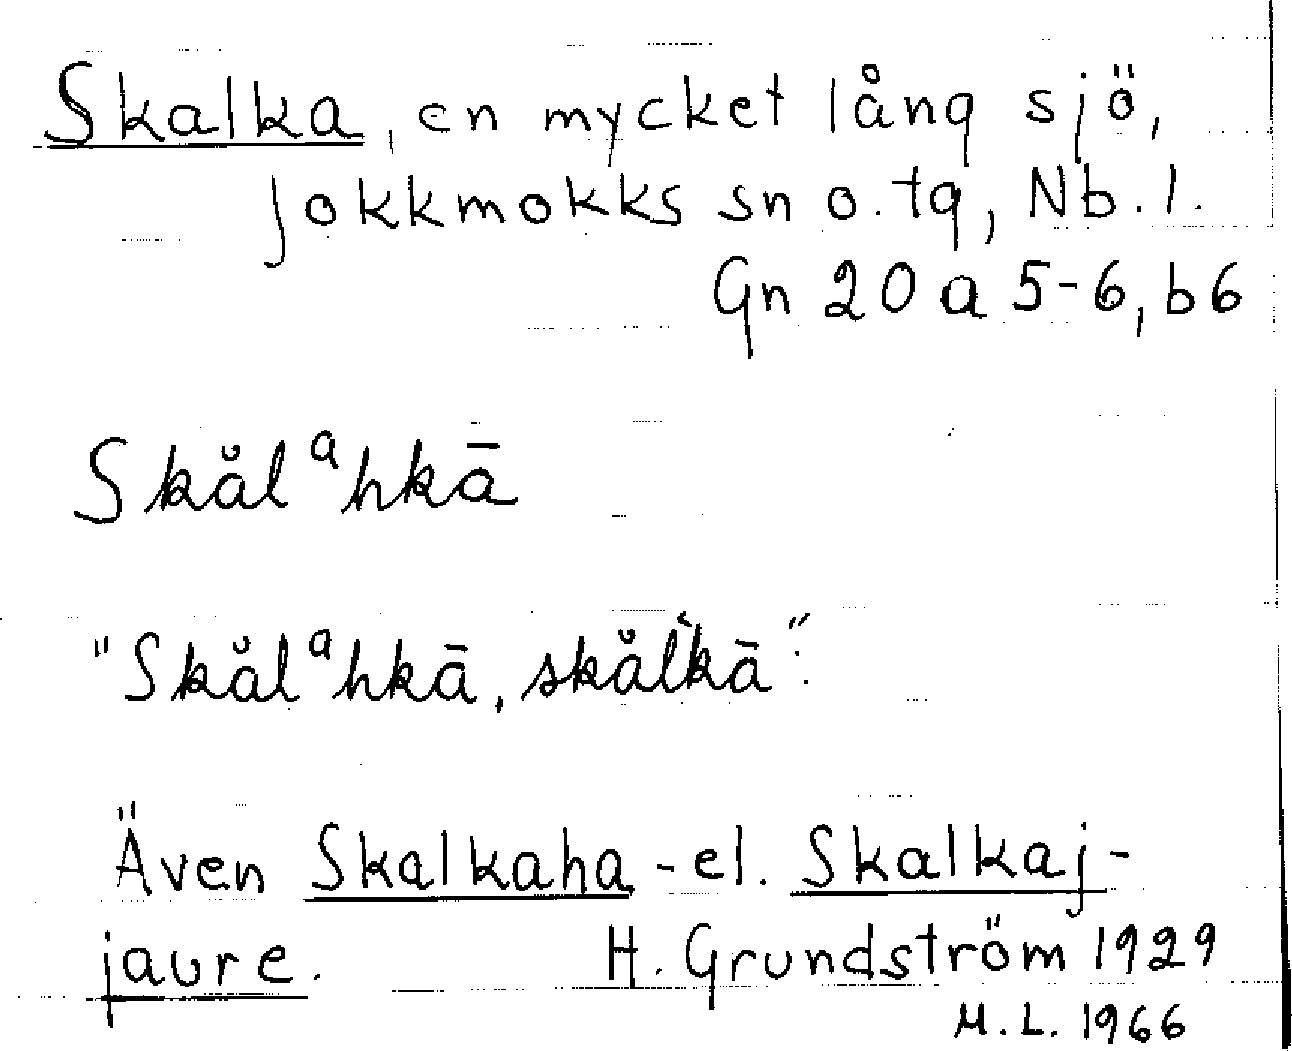 Skalka, en mycket lång sjö,
Jokkmokks sn o. tg, Nb. l.
Gn 20 a 5-6, b6
Skăl ᵃhkā
"Skăl ᵃhkā, skăl̀kā".
Även Skalkaha - el. Skalkaj-
jaure. H. Grundström 1929
M. L. 1966